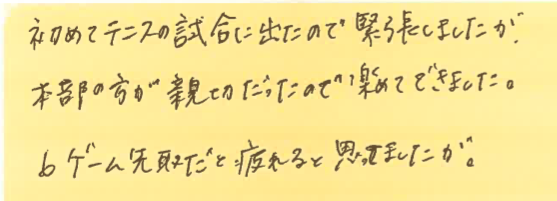 初めてテニスの試合に出たので緊張しましたが、
本部の方が親切だったので楽めてできました。
6ゲーム先取だと疲れると思ってましたが。